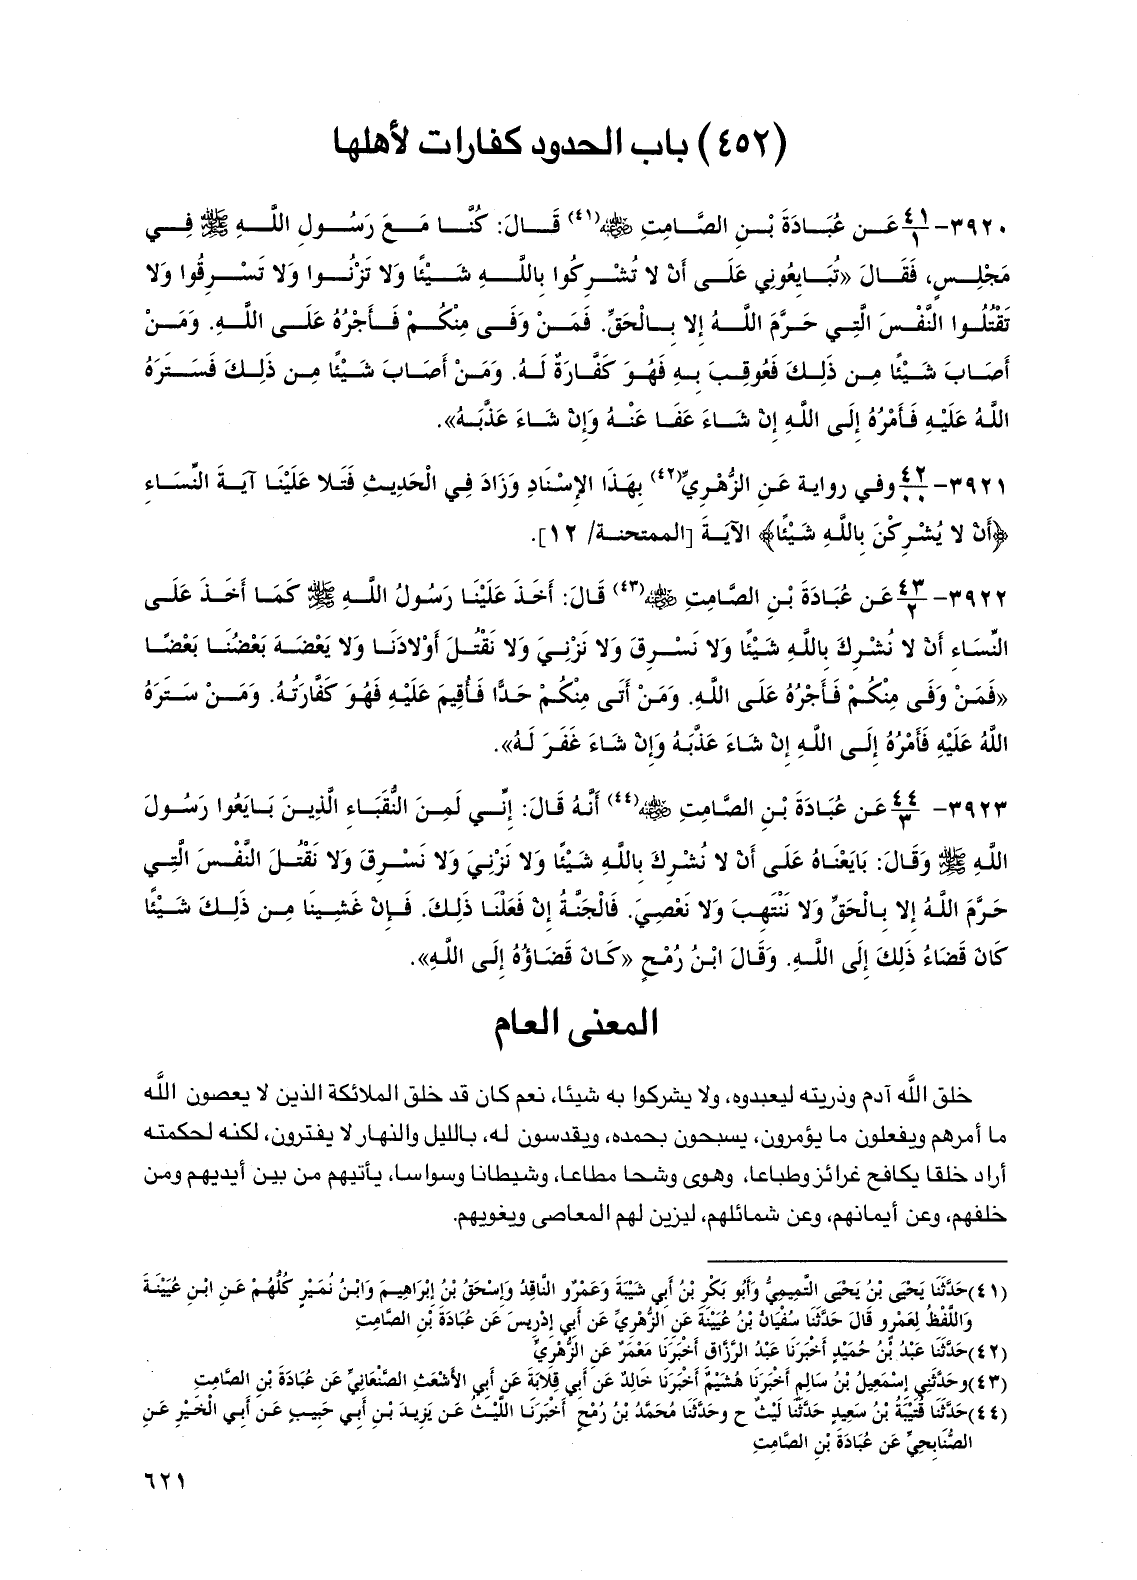 (٤٥٢) باب الحدود كفارات لأهلها
٣٩٢٠- ٤١/١ عَن عُبَادَةَ بْنِ الصَّامِتِ ﷺ(٤١) قَالَ: كُنَّا مَعَ رَسُولِ اللَّهِ ﷺ فِي
مَجْلِسٍ، فَقَالَ «تُبَايِعُونِي عَلَى أَنْ لا تُشْرِكُوا بِاللَّهِ شَيْئًا وَلا تَزْنُوا وَلا تَسْرِقُوا وَلا
تَقْتُلُوا النَّفْسَ الَّتِي حَرَّمَ اللَّهُ إِلا بِالْحَقِّ. فَمَنْ وَفَى مِنْكُمْ فَأَجْرُهُ عَلَى اللَّهِ. وَمَنْ
أَصَابَ شَيْئًا مِن ذَلِكَ فَعُوقِبَ بِهِ فَهُوَ كَفَّارَةٌ لَهُ. وَمَنْ أَصَابَ شَيْئًا مِن ذَلِكَ فَسَتَرَهُ
اللَّهُ عَلَيْهِ فَأَمْرُهُ إِلَى اللَّهِ إِنْ شَاءَ عَفَا عَنْهُ وَإِنْ شَاءَ عَذَّبَهُ».
٣٩٢١- ٤٢/٠٠ وفي رواية عَنِ الزُّهْرِيِّ(٤٢) بِهَذَا الإِسْنَادِ وَزَادَ فِي الْحَدِيثِ فَتَلا عَلَيْنَا آيَةَ النِّسَاءِ
﴿أَنْ لا يُشْرِكْنَ بِاللَّهِ شَيْئًا﴾ الآيَةَ [الممتحنة/ ١٢].
٣٩٢٢- ٤٣/٢ عَن عُبَادَةَ بْنِ الصَّامِتِ (٤٣) قَالَ: أَخَذَ عَلَيْنَا رَسُولُ اللَّهِ ﷺ كَمَا أَخَذَ عَلَى
النِّسَاءِ أَنْ لا نُشْرِكَ بِاللَّهِ شَيْئًا وَلا نَسْرِقَ وَلا نَزْنِيَ وَلا نَقْتُلَ أَوْلادَنَا وَلا يَعْضَهَ بَعْضُنَا بَعْضًا
«فَمَنْ وَفَى مِنْكُمْ فَأَجْرُهُ عَلَى اللَّهِ. وَمَنْ أَتَى مِنْكُمْ حَدًّا فَأُقِيمَ عَلَيْهِ فَهُوَ كَفَّارَتُهُ. وَمَنْ سَتَرَهُ
اللَّهُ عَلَيْهِ فَأَمْرُهُ إِلَى اللَّهِ إِنْ شَاءَ عَذَّبَهُ وَإِنْ شَاءَ غَفَرَ لَهُ».
٣٩٢٣- ٤٤/٣ عَن عُبَادَةَ بْنِ الصَّامِتِ (٤٤) أَنَّهُ قَالَ: إِنِّي لَمِنَ النُّقَبَاءِ الَّذِينَ بَايَعُوا رَسُولَ
اللَّهِ ﷺ وَقَالَ: بَايَعْنَاهُ عَلَى أَنْ لا نُشْرِكَ بِاللَّهِ شَيْئًا وَلا نَزْنِيَ وَلا نَسْرِقَ وَلا نَقْتُلَ النَّفْسَ الَّتِي
حَرَّمَ اللَّهُ إِلا بِالْحَقِّ وَلا نَنْتَهِبَ وَلا نَعْصِيَ. فَالْجَنَّةُ إِنْ فَعَلْنَا ذَلِكَ. فَإِنْ غَشِينَا مِن ذَلِكَ شَيْئًا
كَانَ قَضَاءُ ذَلِكَ إِلَى اللَّهِ. وَقَالَ ابْنُ رُمْحٍ «كَانَ قَضَاؤُهُ إِلَى اللَّهِ».
المعنى العام
خلق اللَّه آدم وذريته ليعبدوه، ولا يشركوا به شيئا، نعم كان قد خلق الملائكة الذين لا يعصون اللَّه
ما أمرهم ويفعلون ما يؤمرون، يسبحون بحمده، ويقدسون له، بالليل والنهار لا يفترون، لكنه لحكمته
أراد خلقا يكافح غرائز وطباعا، وهوى وشحا مطاعا، وشيطانا وسواسا، يأتيهم من بين أيديهم ومن
خلفهم، وعن أيمانهم، وعن شمائلهم، ليزين لهم المعاصى ويغويهم.
(٤١) حَدَّثَنَا يَحْيَى بْنُ يَحْيَى التَّمِيمِيُّ وَأَبُو بَكْرِ بْنُ أَبِي شَيْبَةَ وَعَمْرٌو النَّاقِدُ وَإِسْحَقُ بْنُ إِبْرَاهِيمَ وَابْنُ نُمَيْرٍ كُلُّهُمْ عَنِ ابْنِ عُيَيْنَةَ
وَاللَّفْظُ لِعَمْرٍو قَالَ حَدَّثَنَا سُفْيَانُ بْنُ عُيَيْنَةَ عَنِ الزُّهْرِيِّ عَن أَبِي إِدْرِيسَ عَن عُبَادَةَ بْنِ الصَّامِتِ
(٤٢) حَدَّثَنَا عَبْدُ بْنُ حُمَيْدٍ أَخْبَرَنَا عَبْدُ الرَّزَّاقِ أَخْبَرَنَا مَعْمَرٌ عَنِ الزُّهْرِيِّ
(٤٣) وحَدَّثَنِي إِسْمَعِيلُ بْنُ سَالِمٍ أَخْبَرَنَا هُشَيْمٌ أَخْبَرَنَا خَالِدٌ عَن أَبِي قِلابَةَ عَن أَبِي الأَشْعَثِ الصَّنْعَانِيِّ عَن عُبَادَةَ بْنِ الصَّامِتِ
(٤٤) حَدَّثَنَا قُتَيْبَةُ بْنُ سَعِيدٍ حَدَّثَنَا لَيْثٌ ح وحَدَّثَنَا مُحَمَّدُ بْنُ رُمْحٍ أَخْبَرَنَا اللَّيْثُ عَن يَزِيدَ بْنِ أَبِي حَبِيبٍ عَن أَبِي الْخَيْرِ عَنِ
الصُّنَابِحِيِّ عَن عُبَادَةَ بْنِ الصَّامِتِ
٦٢١